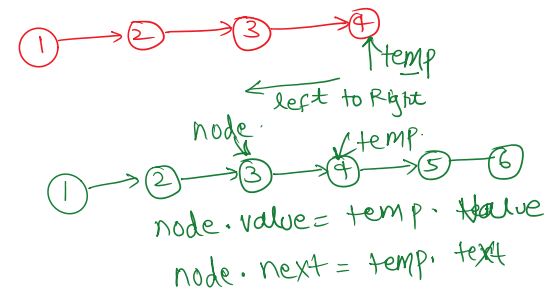 1 2 3 4
temp
left to Right
node.
temp.
1 2 3 4 5 6
node.value = temp.value
node.next = temp.text